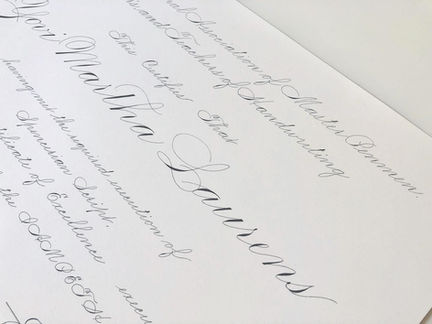 nal Association of Master Penmen.
s and Teachers of Handwriting
This Certifies That
Yovi Martha Laurens
having met the required execution of
Spencerian Script.
ificate of Excellence
the IAMPETH
execu